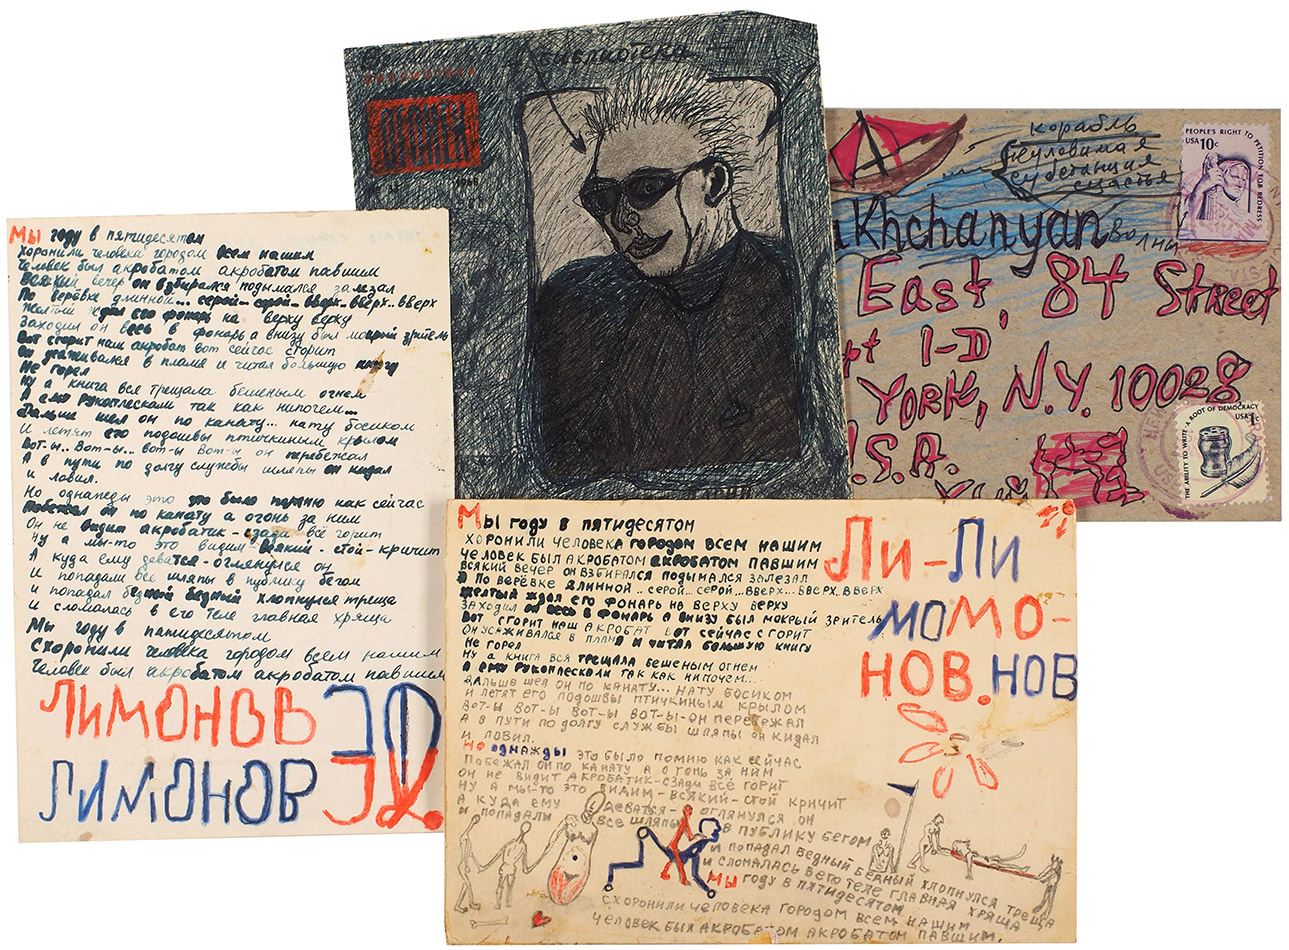 Мы году в пятидесятом
хоронили человека городом всем нашим
Человек был акробатом акробатом павшим
Всякий вечер он взбирался подымался залезал
По верёвке длинной... серой.. серой.. вверх..вверх..вверх
Желтый ждал его фонарь на верху верху
Заходил он весь в фонарь а внизу был мокрый зритель
Вот сгорит наш акробат вот сейчас сгорит
Он усаживался в пламя и читал большую книгу
Не горел
Ну а книга вся трещала бешеным огнем
А ему рукоплескали так как нипочем...
Дальше шел он по канату... нату босиком
И летят его подошвы птичкиным крылом
Вот-ы.. Вот-ы... вот-ы Вот-ы он перебежал
А в пути по долгу службы шляпы он кидал
и ловил.
Но однажды это это было помню как сейчас
Побежал он по канату а огонь за ним
Он не видит акробатик - сзади всё горит
Ну а мы-то это видим - всякий - стой - кричит
А куда ему деваться - оглянулся он
И попадали все шляпы в публику бегом
и попадал бедный бедный хлопнулся треща
И сломалась в его теле главная хряща
Мы году в пятидесятом
Схоронили человека городом всем нашим
Человек был акробатом акробатом павшим
ЛИМОНОВ ЭД.
ЛИМОНОВ ЭД.
библиотека
БИБЛИОТЕКА
ОГОНЁК
корабль
неуловимая
субстанция
счастья
Волны
PEOPLE'S RIGHT TO PETITION FOR REDRESS
USA 10c
Khchanyan
East, 84 Street
pt 1-D
YORK, N.Y. 10028
.S.A.
THE ABILITY TO WRITE · A ROOT OF DEMOCRACY
USA 1c
Мы году в пятидесятом
хоронили человека городом всем нашим
человек был акробатом акробатом павшим
всякий вечер он взбирался подымался залезал
а по верёвке длинной.. серой... серой.. вверх... вверх. вверх
желтый ждал его фонарь на верху верху
заходил он весь в фонарь а внизу был мокрый зритель
Вот сгорит наш акробат вот сейчас сгорит
Он усаживался в пламя и читал большую книгу
Не горел
Ну а книга вся трещала бешеным огнем
А ему рукоплескали так как нипочем...
дальше шел он по канату... нату босиком
и летят его подошвы птичкиным крылом
Вот-ы Вот-ы Вот-ы Вот-ы-он перебежал
А в пути по долгу службы шляпы он кидал
и ловил.
Но однажды это было помню как сейчас
Побежал он по канату а огонь за ним
Он не видит акробатик - сзади всё горит
Ну а мы-то это видим - всякий - стой кричит
А куда ему деваться - оглянулся он
и попадали все шляпы в публику бегом
и попадал бедный бедный хлопнулся треща
и сломалась в его теле главная хряща
Мы году в пятидесятом
схоронили человека городом всем нашим
человек был акробатом акробатом павшим.
Ли-Ли
МОМО-
НОВ.НОВ